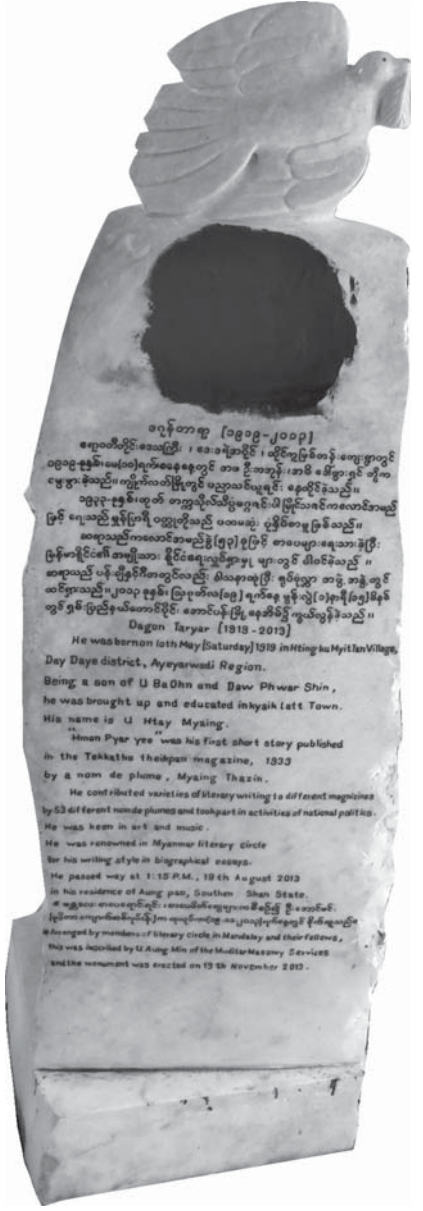 ဒဂုန်တာရာ (၁၉၁၉-၂၀၁၃)
ဧရာဝတီတိုင်းဒေသကြီး ၊ ဒေးဒရဲခရိုင် ၊ ထိုင်ကူမြစ်တန်းကျေးရွာတွင်
၁၉၁၉-ခုနှစ်၊ မေ(၁၀)ရက်စနေနေ့တွင် အဖ ဦးဘအုန်း၊ အမိ ဒေါ်ဖွားရှင် တို့က
မွေးဖွားခဲ့သည်။ ကျိုက်လတ်မြို့တွင် ပညာသင်ယူရင်း နေထိုင်ခဲ့သည်။
၁၉၃၃-ခုနှစ်ထုတ် တက္ကသိုလ်သိပ္ပံမဂ္ဂဇင်းပါ မြိုင်သဇင်ကလောင်အမည်
ဖြင့် ရေးသည့် မှုန်ပြာရီ ဝတ္ထုတိုသည် ပထမဆုံး ပုံနှိပ်စာမူဖြစ်သည်။
ဆရာသည်ကလောင်အမည်ခွဲ(၅၃)ခုဖြင့် စာပေများရေးသားခဲ့ပြီး
မြန်မာနိုင်ငံ၏ အမျိုးသား နိုင်ငံရေးလှုပ်ရှားမှု များတွင် ပါဝင်ခဲ့သည် ။
ဆရာသည် ပန်းချီနှင့်ဂီတတွင်လည်း ဝါသနာထုံပြီး ရုပ်ပုံလွှာ အဖွဲ့ အနွဲ့ တွင်
ထင်ရှားသည်။၂၀၁၃ ခုနှစ် ဩဂုတ်လ(၁၉) ရက်နေ့ မွန်းလွဲ(၁)နာရီ(၁၅)မိနစ်
တွင် ရှမ်းပြည်နယ်တောင်ပိုင်း အောင်ပန်းမြို့ နေအိမ်၌ ကွယ်လွန်ခဲ့သည် ။
Dagon Taryar (1919-2013)
He was born on 10th May (Saturday) 1919 in Hting ku Myit Tan Village,
Day Daye district, Ayeyarwadi Region.
Being a son of U Ba Ohn and Daw Phwar Shin,
he was brought up and educated in kyaik latt Town.
His name is U Htay Myaing.
"Hmon Pyar yee" was his first short story published
in the Tekkatho theikpan magazine, 1933
by a nom de plume, Myaing Thazin.
He contributed varieties of literary writing to different magazines
by 53 different nom de plumes and took part in activities of national politics.
He was keen in art and music.
He was renowned in Myanmar literary circle
for his writing style in biographical essays.
He passed way at 1:15 P.M., 19 th August 2013
in his residence of Aung pan, Southen Shan State.
Arranged by members of literary circle in Mandalay and their fellows,
this was inscribed by U Aung Min of the Muditar Masonry Services
and the monument was erected on 19 th November 2013.